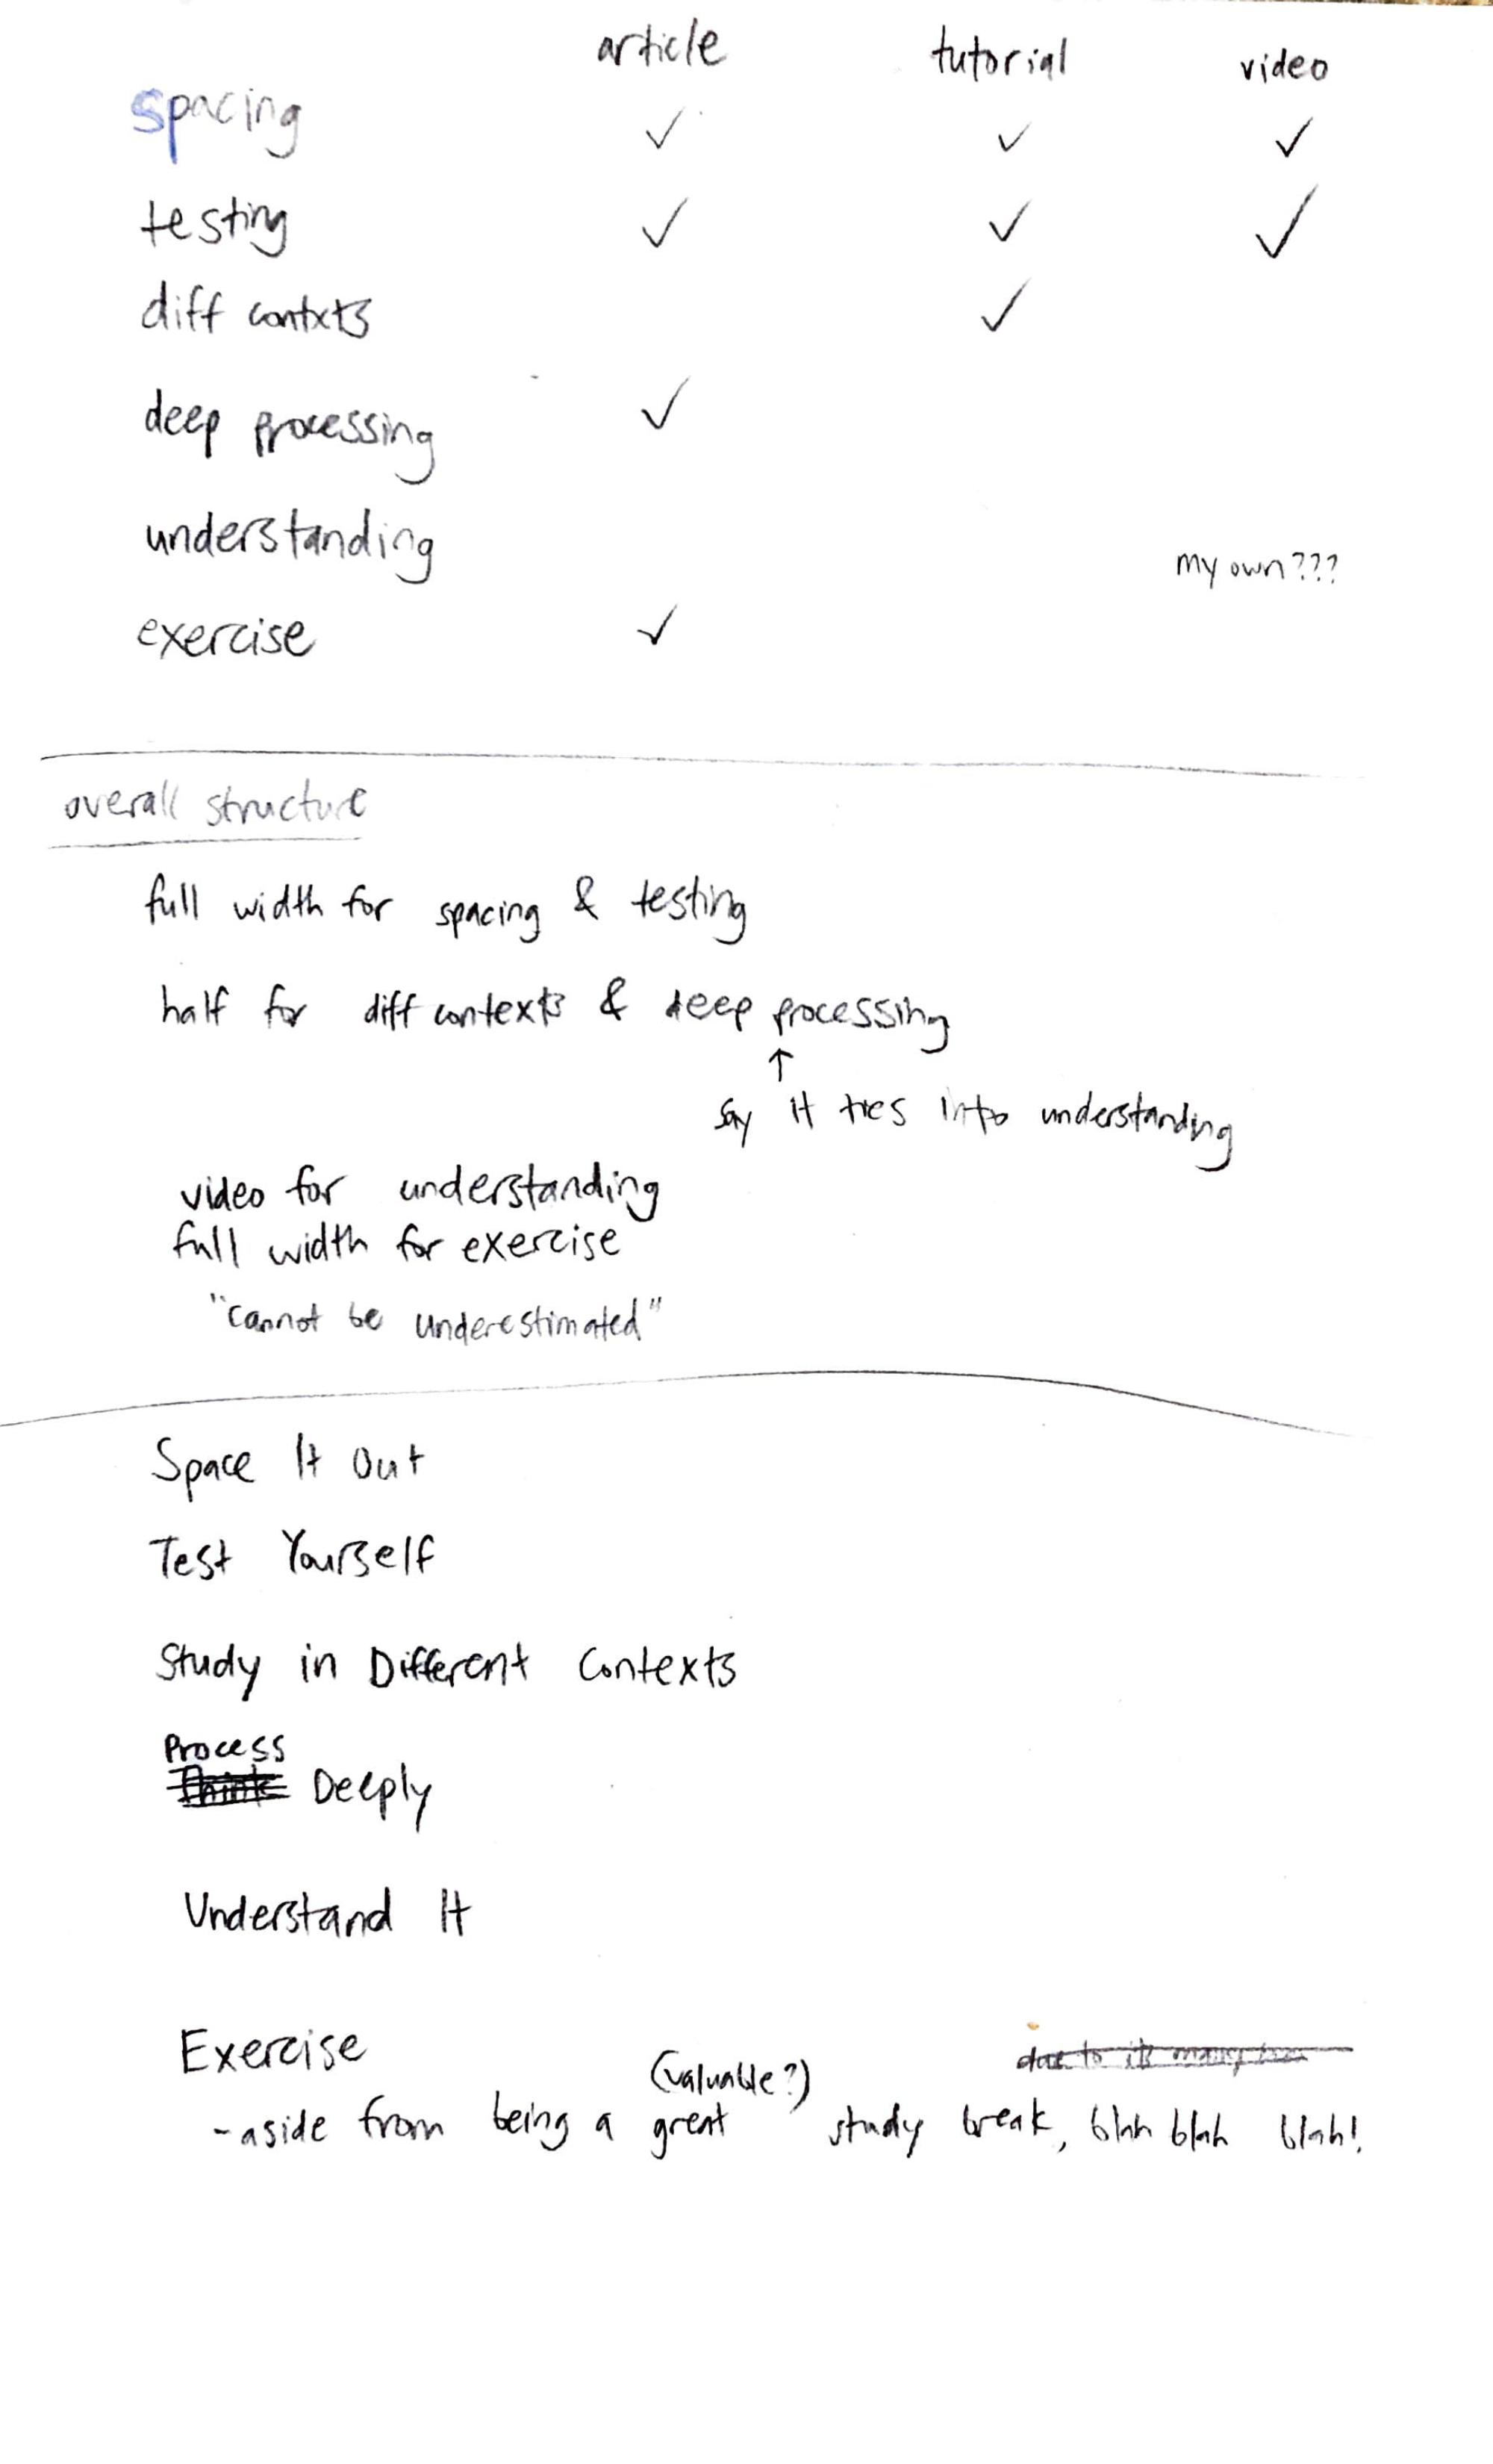 article tutorial video
spacing ✓ ✓ ✓
testing ✓ ✓ ✓
diff contxts ✓
deep processing ✓
understanding my own???
exercise ✓
overall structure
full width for spacing & testing
half for diff contexts & deep processing
↑
say it ties into understanding
video for understanding
full width for exercise
"cannot be underestimated"
Space It Out
Test Yourself
Study in Different Contexts
Process
Think Deeply
Understand It
Exercise
due to its many
(valuable?)
-aside from being a great study break, blah blah blah!